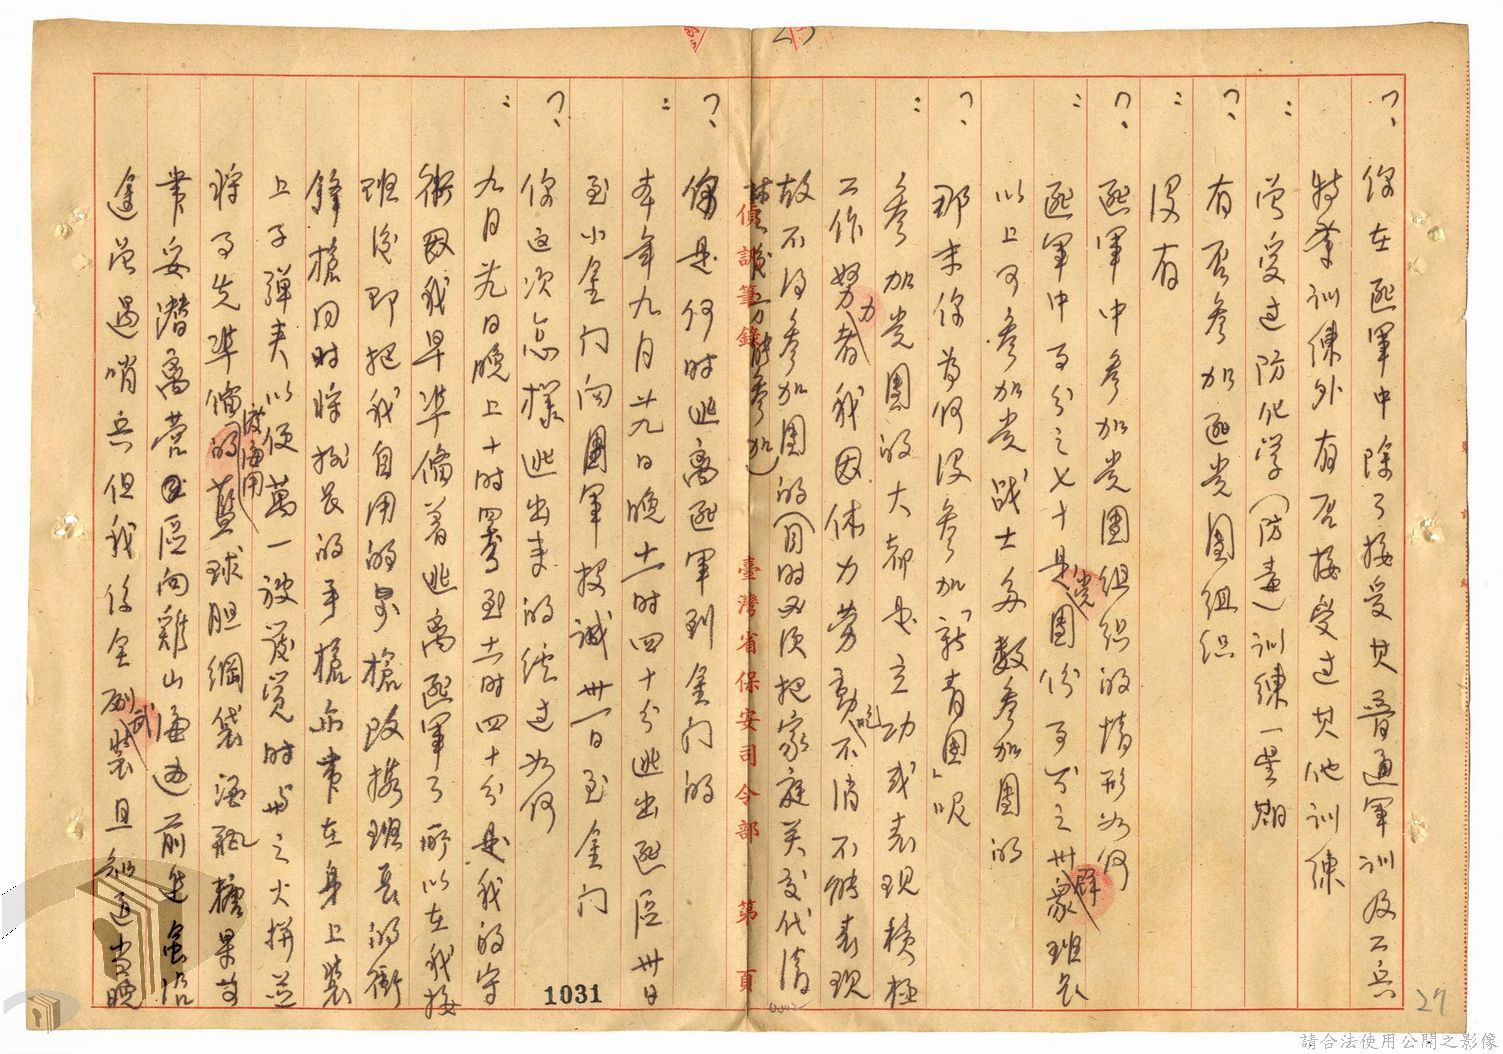 ？、你在匪軍中除了接受其普通軍訓及工兵
特業訓練外有否接受过其他訓練
：曾受过防化学(防毒)訓練一星期
？、有否參加匪党團組织
：没有
？、匪軍中參加党團組织的情形如何
：匪軍中百分之七十是党團份子百分之卅群衆班長
以上可參加党战士多數參加團的
？、那末你為何没參加「新青團」呢
：參加党團的大都是立功或表現積極
工作努力者我因体力劳動不消不能表現
故不得參加團的(同时必须把家庭关系交代清
能參加)
偵訊筆錄 臺灣省保安司令部 第 頁
？、你是何时逃离匪軍到金门的
：本年九月廿九日晚十一时四十分逃出匪區卅日
至小金门向國軍投誠卅一日至金门
？、你这次怎樣逃出来的經过如何
：九月廿九日晚上十时四十分至十一时四十分是我的守
衛因我早準備着逃离匪軍了所以在我接
班後即把我自用的步槍改換班長的衝
鋒槍同时將排長的手槍亦帶在身上裝
上子彈夹以便萬一被发覚时与之火拼並
將事先準備的渡海用藍球胆綱袋酒瓶糖果等
帶妥潛离營區向雞山海边前进虽沿
途曾遇哨兵但我係全副武裝且知道當晚
1031
27
請合法使用公開之影像